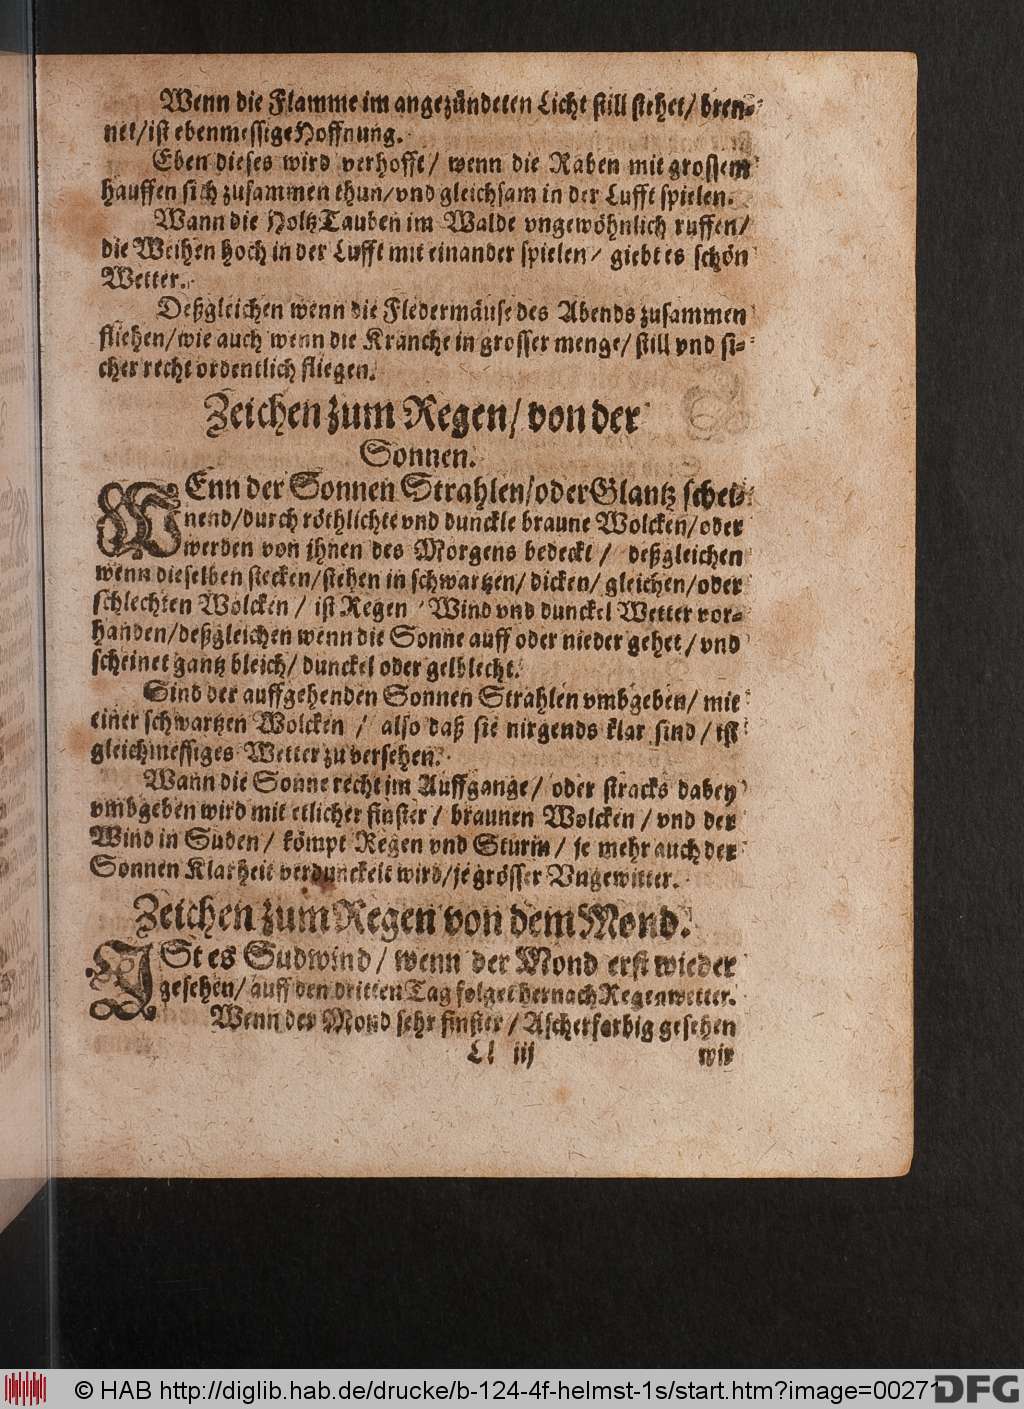 Wenn die Flamme im angezündeten Licht still stehet/ bren-
net/ist ebenmessige Hoffnung.
Eben dieses wird verhofft/ wenn die Raben mit grossem
hauffen sich zusammen thun/vnd gleichsam in der Lufft spielen.
Wann die HoltzTauben im Walde vngewöhnlich ruffen/
die Weihen hoch in der Lufft mit einander spielen/ giebt es schön
Wetter.
Deßgleichen wenn die Fledermäuse des Abends zusammen
fliehen/wie auch wenn die Kranche in grosser menge/ still vnd si-
cher recht ordentlich fliegen.
Zeichen zum Regen/ von der
Sonnen.
WEnn der Sonnen Strahlen/oder Glantz schei-
nend/durch röthlichte vnd dunckle braune Wolcken/oder
werden von ihnen des Morgens bedeckt/ deßgleichen
wenn dieselben stecken/stehen in schwartzen/ dicken/ gleichen/oder
schlechten Wolcken/ ist Regen/ Wind vnd dunckel Wetter vor-
handen/deßgleichen wenn die Sonne auff oder nieder gehet/ vnd
scheinet gantz bleich/ dunckel oder gelblecht.
Sind der auffgehenden Sonnen Strahlen vmbgeben/ mit
einer schwartzen Wolcken/ also daß sie nirgends klar sind/ ist
gleichmessiges Wetter zu versehen.
Wann die Sonne recht im Auffgange/ oder stracks dabey
vmbgeben wird mit etlicher finster/ braunen Wolcken/ vnd der
Wind in Suden/ kömpt Regen vnd Sturm/ je mehr auch der
Sonnen Klarheit verdunckelt wird/je grösser Vngewitter.
Zeichen zum Regen von dem Mond.
ISt es Sudwind/ wenn der Mond erst wieder
gesehen/ auff den dritten Tag folget hernach Regenwetter.
Wenn der Mond sehr finster/ Ascherfarbig gesehen
Ll iij wir
© HAB http://diglib.hab.de/drucke/b-124-4f-helmst-1s/start.htm?image=00271
DFG